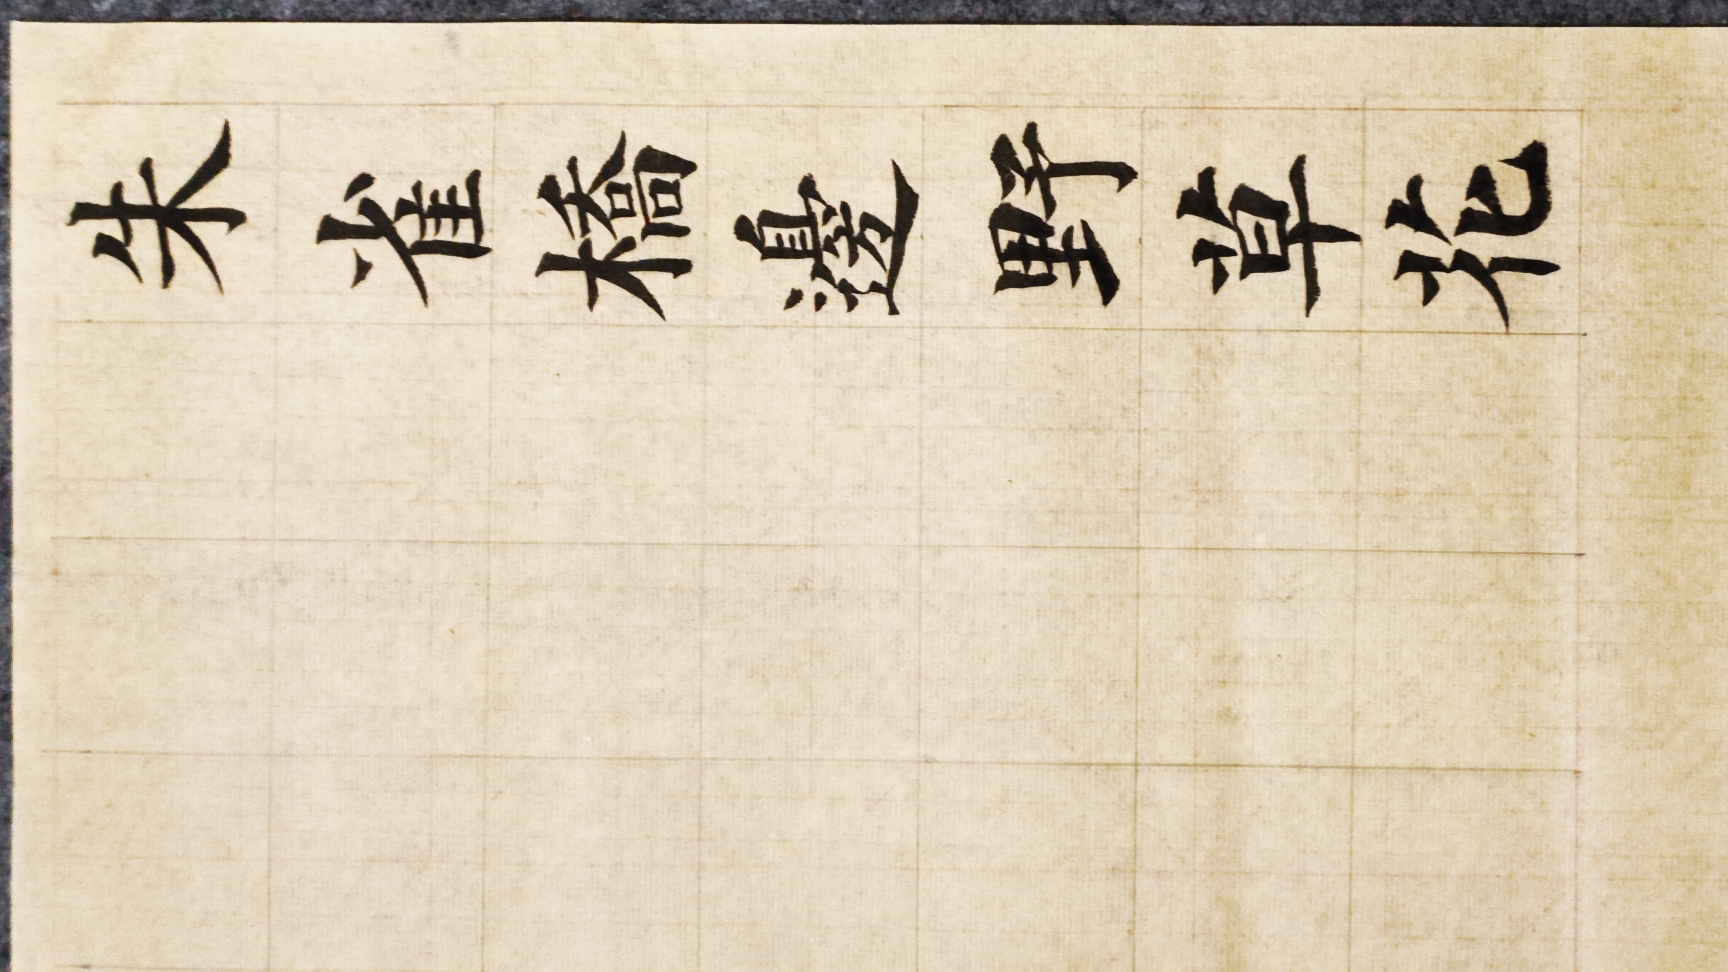 朱雀橋邊野草花